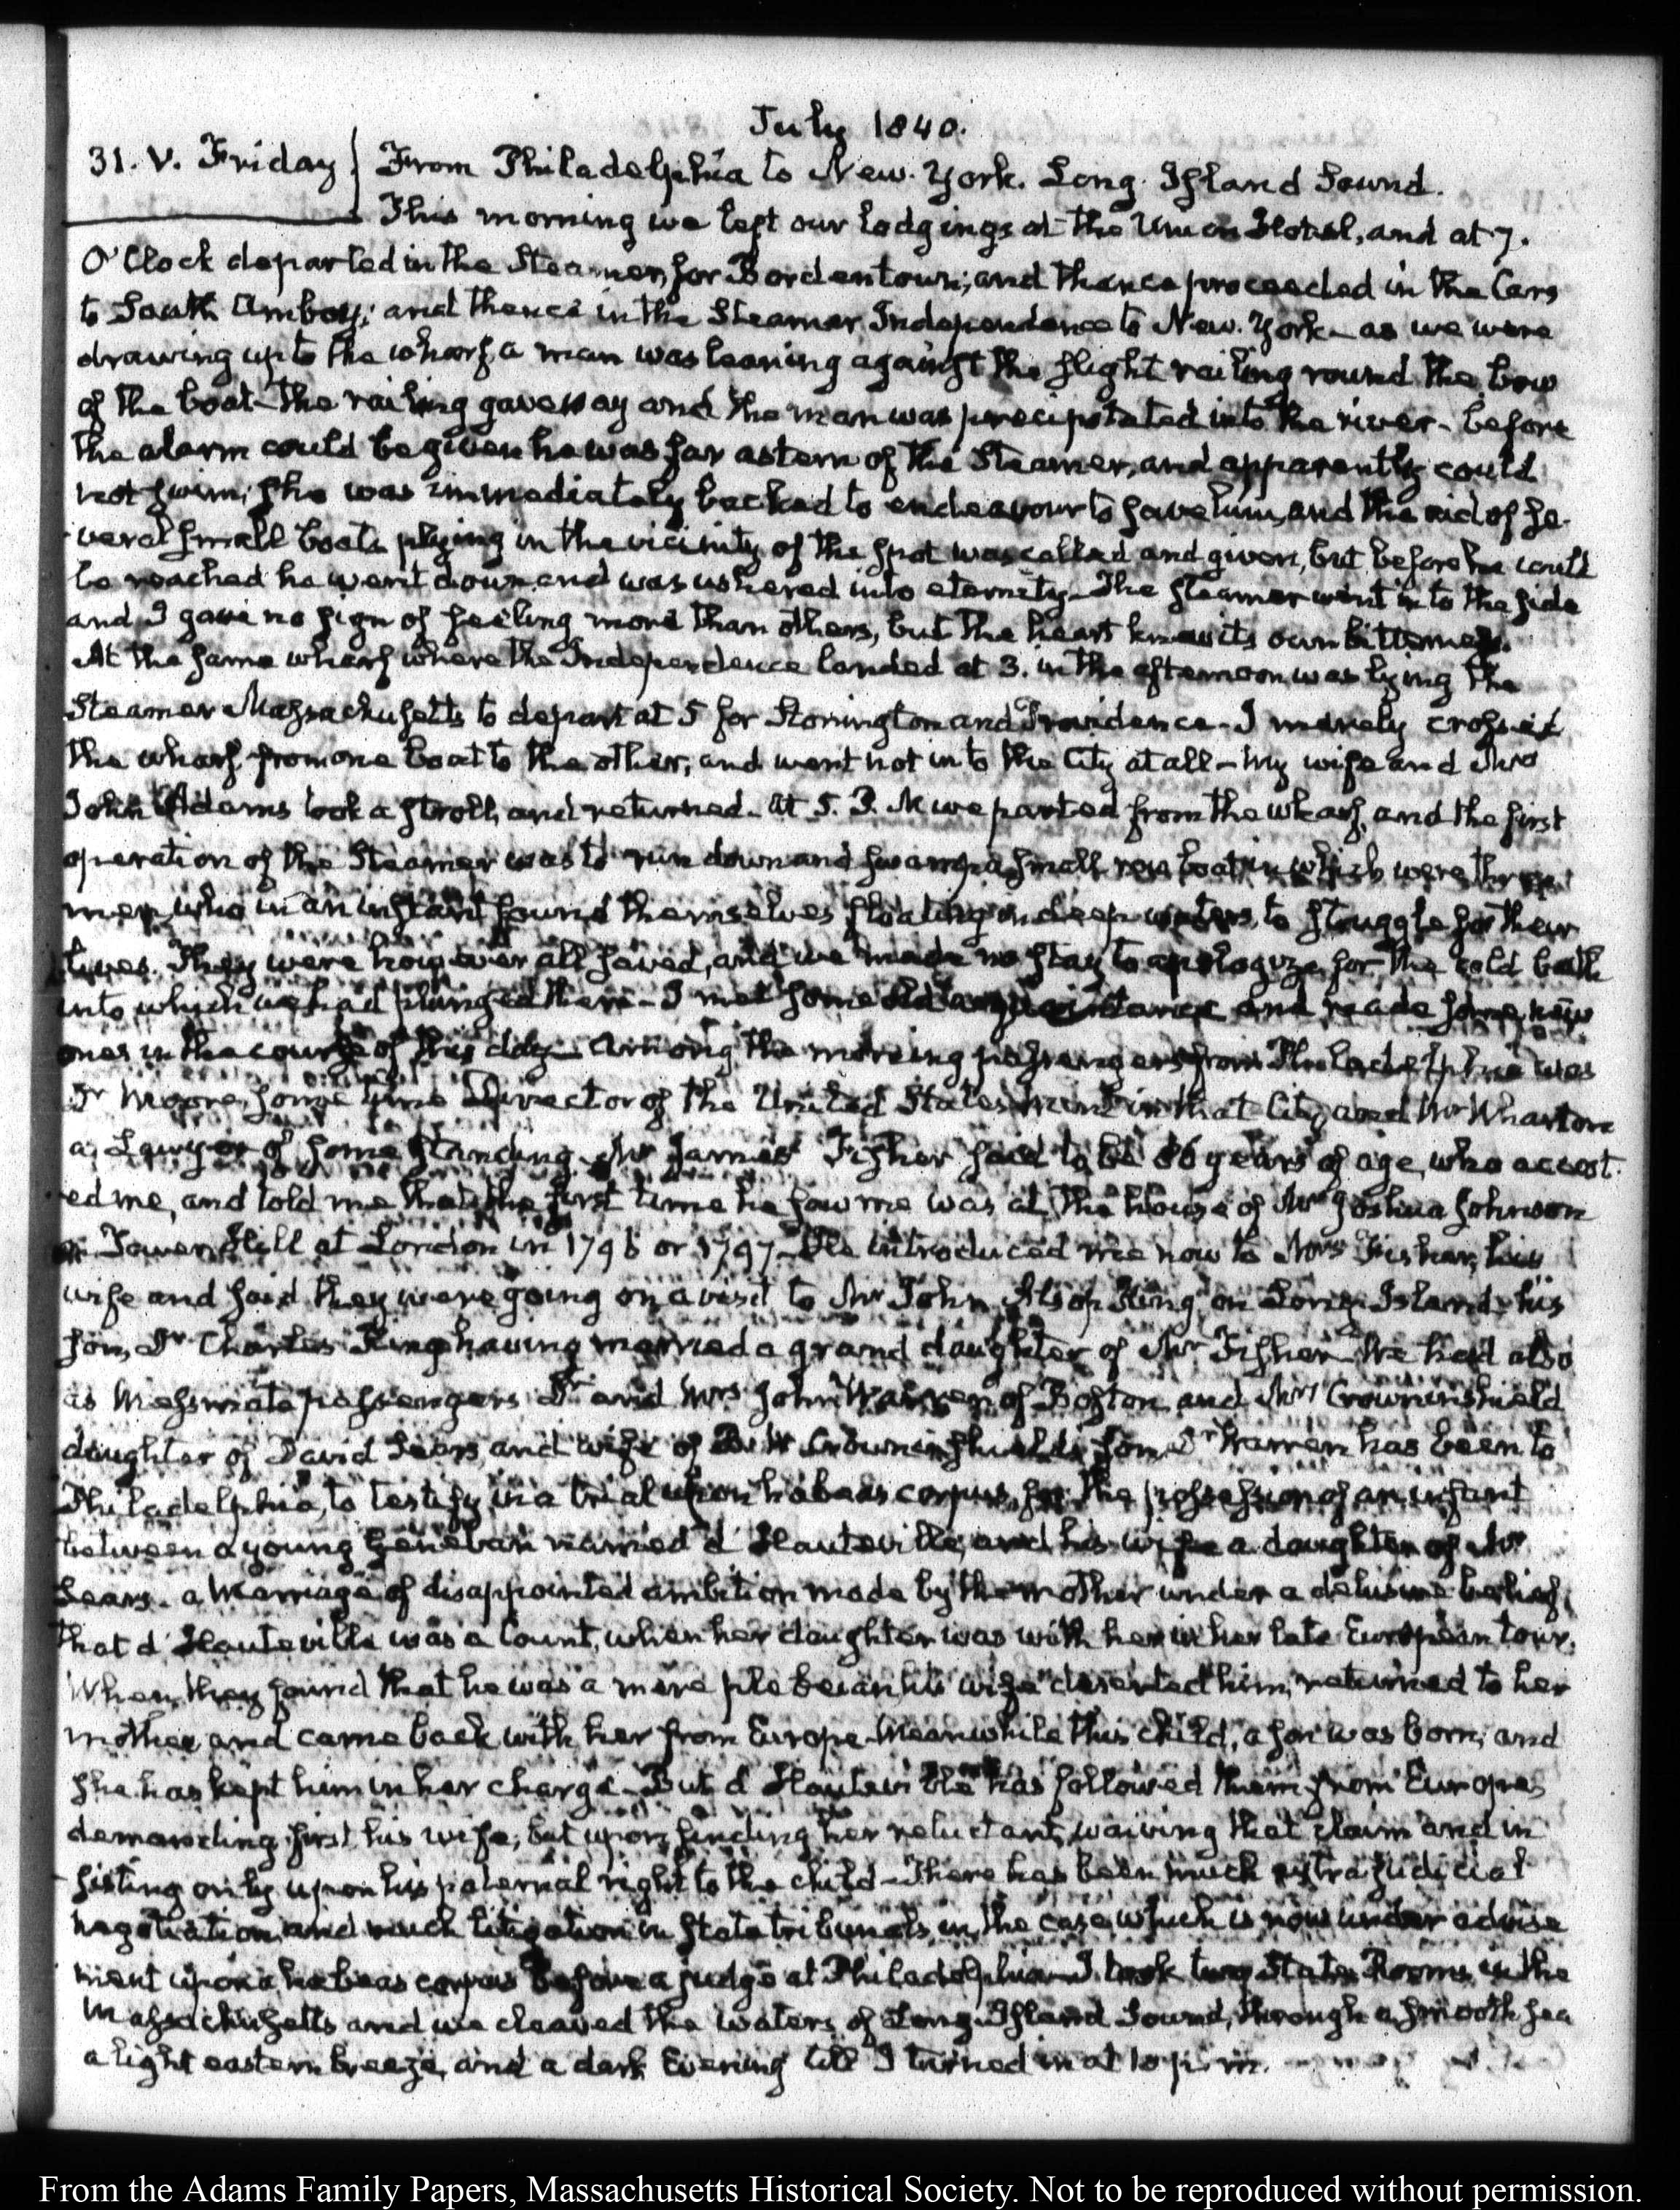 July 1840.
31. V. Friday } From Philadelphia to New-York. Long-Island Sound.
This morning we left our lodgings at the Union Hotel, and at 7.
O'Clock departed in the Steamer, for Bordentown; and thence proceeded in the Cars
to South Amboy; and thence in the Steamer Independence to New-York — as we were
drawing up to the wharf, a man was leaning against the slight railing round the bow
of the boat — the railing gave way and the man was precipitated into the river — before
the alarm could be given he was far astern of the Steamer, and apparently could
not swim; she was immediately backed to endeavour to save him, and the aid of se-
veral small boats plying in the vicinity of the spot was called and given, but before he could
be reached he went down and was ushered into eternity — The steamer went in to the side
and I gave no sign of feeling more than others, but the heart knew its own bitterness.
At the same wharf where the Independence landed at 3. in the afternoon was lying the
Steamer Massachusetts to depart at 5 for Stonington and Providence — I merely crossed
the wharf from one boat to the other, and went not into the City at all — My wife and Mrs
John Adams took a stroll, and returned — at 5. P. M we parted from the wharf, and the first
operation of the Steamer was to run down and swamp a small row boat in which were three
men, who in an instant found themselves floating in deep waters, to struggle for their
lives. They were however all saved, and we made no stay to apologize for the cold bath
into which we had plunged them — I met some old acquaintance and made some new
ones in the course of this day — Among the morning passengers from Philadelphia was
Dr Moore, some time Director of the United States mint in that City, and Mr Wharton
a Lawyer of some standing — Mr James Fisher said to be 86 years of age, who accost-
ed me, and told me that the first time he saw me was at the house of Mr Joshua Johnson
Tower Hill at London in 1796 or 1797 — He introduced me now to Mrs Fisher, his
wife and said they were going on a visit to Mr John Alsop King on Long-Island — his
son, Dr Charles King having married a grand daughter of Mr Fisher — We had also
as Messmate passengers Dr and Mrs John Warren of Boston, and Mrs Crowninshield
daughter of David Sears, and wife of B. W Crowninshield's son — Dr Warren has been to
Philadelphia, to testify in a trial upon habeas corpus, for the possession of an infant
between a young Genevan named d'Hauteville, and his wife a daughter of Mr
Sears — a Marriage of disappointed ambition made by the mother under a delusive belief,
that d'Hauteville was a Count, when her daughter was with her in her late European tour.
When they found that he was a mere plebeian, his wife deserted him, returned to her
mother, and came back with her from Europe — Meanwhile this child, a son was born; and
she has kept him in her charge — But d'Hauteville has followed them from Europe,
demanding first his wife; but upon finding her reluctant, waiving that claim and in-
sisting only upon his paternal right to the child — There has been much extrajudicial
negotiation, and much litigation in State tribunals, in the case, which is now under advise-
ment upon a habeas corpus before a judge at Philadelphia — I took two State Rooms in the
Massachusetts and we cleaved the waters of Long-Island Sound, through a smooth sea
a light eastern breeze, and a dark Evening till I turned in at 10 p. m.
From the Adams Family Papers, Massachusetts Historical Society. Not to be reproduced without permission.